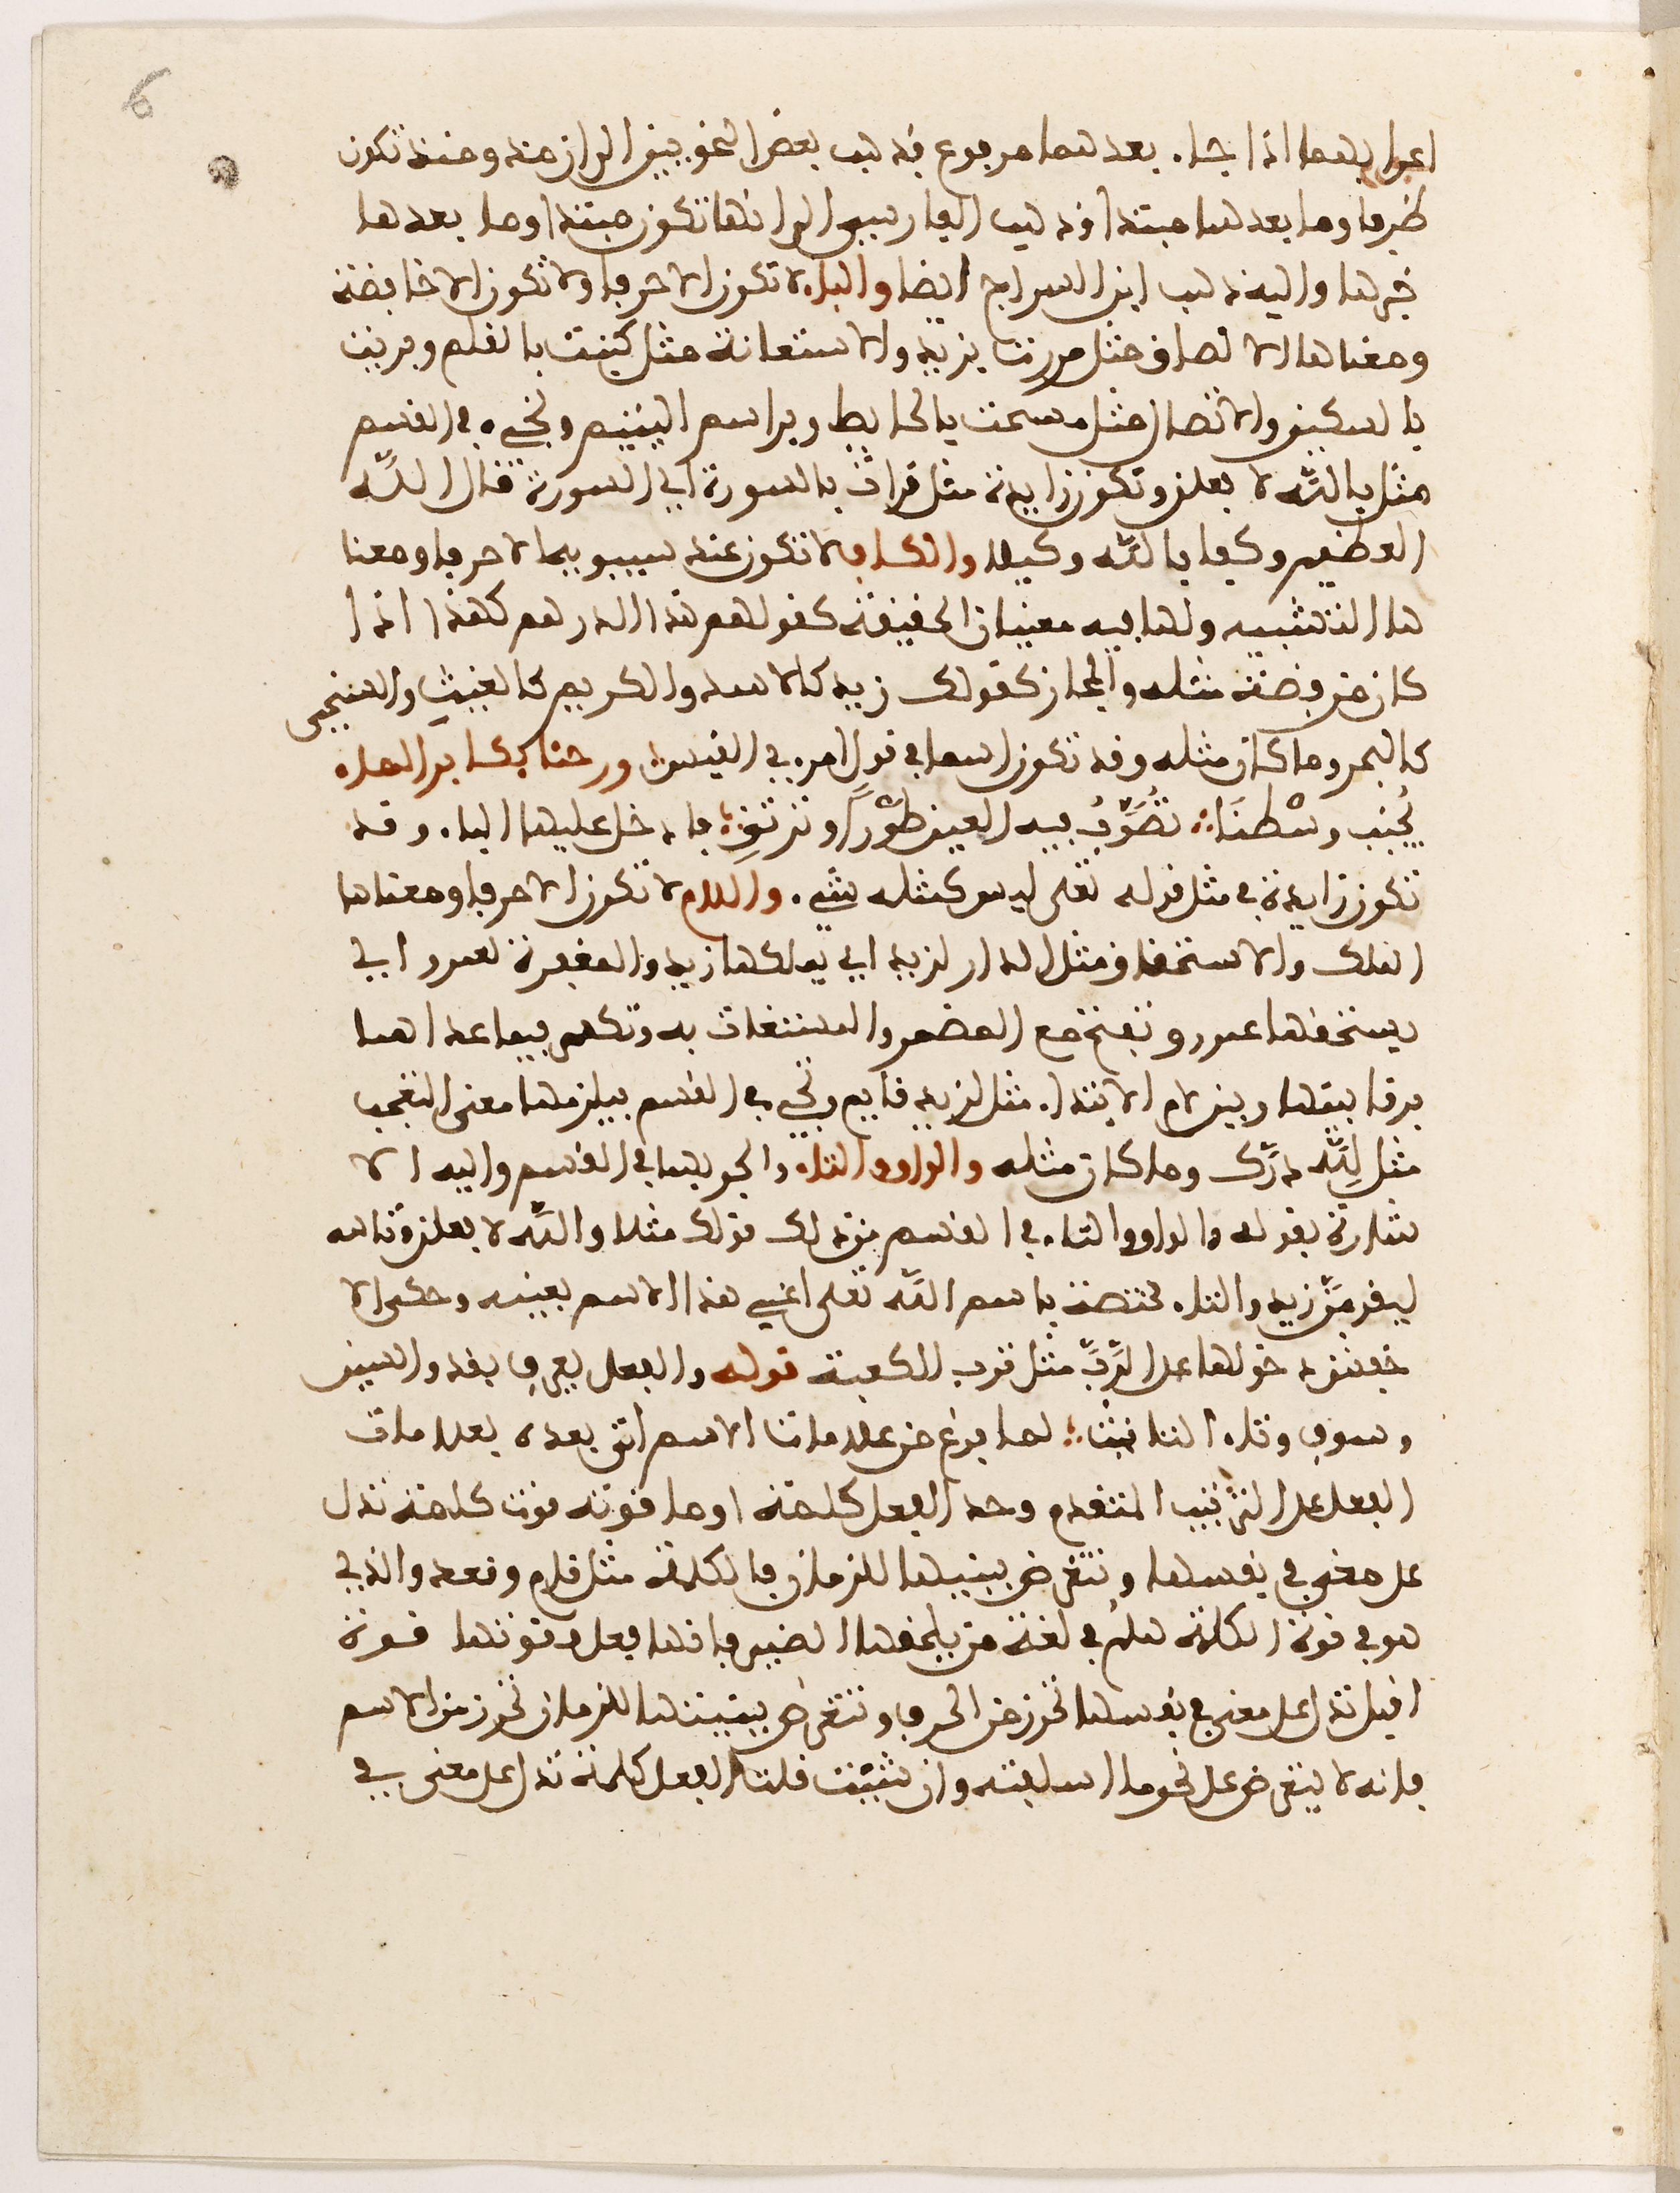 6
اعرابهما اذا جاء بعدهما مرفوع فذهب بعض النحويين الى ان منذ ومنذ تكون
ظرفا وما بعدهما مبتدا وذهب الفارسي الى انها تكون مبتدا وما بعدها
خبرها واليه ذهب ابن السراج ايضا والباء لا تكون الا حرفا ولا تكون الا خافضة
ومعناها الالصاق مثل مررت بزيد والاستعانة مثل كتبت بالقلم وبريت
بالسكين والاتصال مثل مسحت بالحايط وبراس اليتيم وتجيء في القسم
مثل بالله لا فعلن وتكون زايدة مثل قرات بالسورة اي السورة قال الله
العظيم وكفا بالله وكيلا والكاف لا تكون عند سيبويه الا حرفا ومعنا
ها التشبيه ولها فيه معنيان الحقيقة كقولهم هذا الدرهم كهذا اذا
كان من فضة مثله والمجاز كقولك زيد كالاسد والكريم كالغيث والسخي
كالبحر وما كان مثله وقد تكون اسما في قول امرء القيس ورحنا بكابن الماء
يُجنب وسْطنَا تُصَوَّبُ فيه العين طَوْراً وترتقِ فادخل عليها الباء وقد
تكون زايدة في مثل قوله تعلى ليس كمثله شيء واللام لا تكون الا حرفا ومعناها
الملك والاستحقاق مثل الدار لزيد اي يملكها زيد والمغفرة لعمرو اي
يستحقها عمرو وتفتح مع المضمر والمستغاث به وتكسر فيما عداهما
فرقا بينها وبين لام الابتداء مثل لزيد قايم وتجيء في القسم فيلزمها معنى التعجب
مثل لِلَّه دَرّك وما كان مثله والواو والتاء والجر بهما في القسم واليه الا
شارة بقوله والواو والتاء في القسم من ذلك قولك مثلا والله لا فعلن وتالله
ليقومَنَّ زيد والتاء مختصة باسم الله تعلى اعني هذا الاسم بعينه وحكى الا
خفش دخولها على الرَّبّ مثل ترب الكعبة قوله والفعل يعرف بقد والسين
وسوف وتاء التانيث لما فرغ من علامات الاسم اتى بعده بعلامات
الفعل على الترتيب المتقدم وحد الفعل كلمة او ما قوته قوت كلمة تدل
على معنى في نفسها وتتعرض ببنيتها للزمان فالكلمة مثل قام وقعد والذي
هو في قوة الكلمة هلم في لغة من يلحقها الضمير فانها فعل وقوتها قوة
اقبل تدل على معنى في نفسها تحرز من الحرف وتتعرض ببنيتها للزمان تحرز من الاسم
فانه لا يتعرض على نحو ما اسلفته وان شيت قلت الفعل كلمة تدل على معنى في